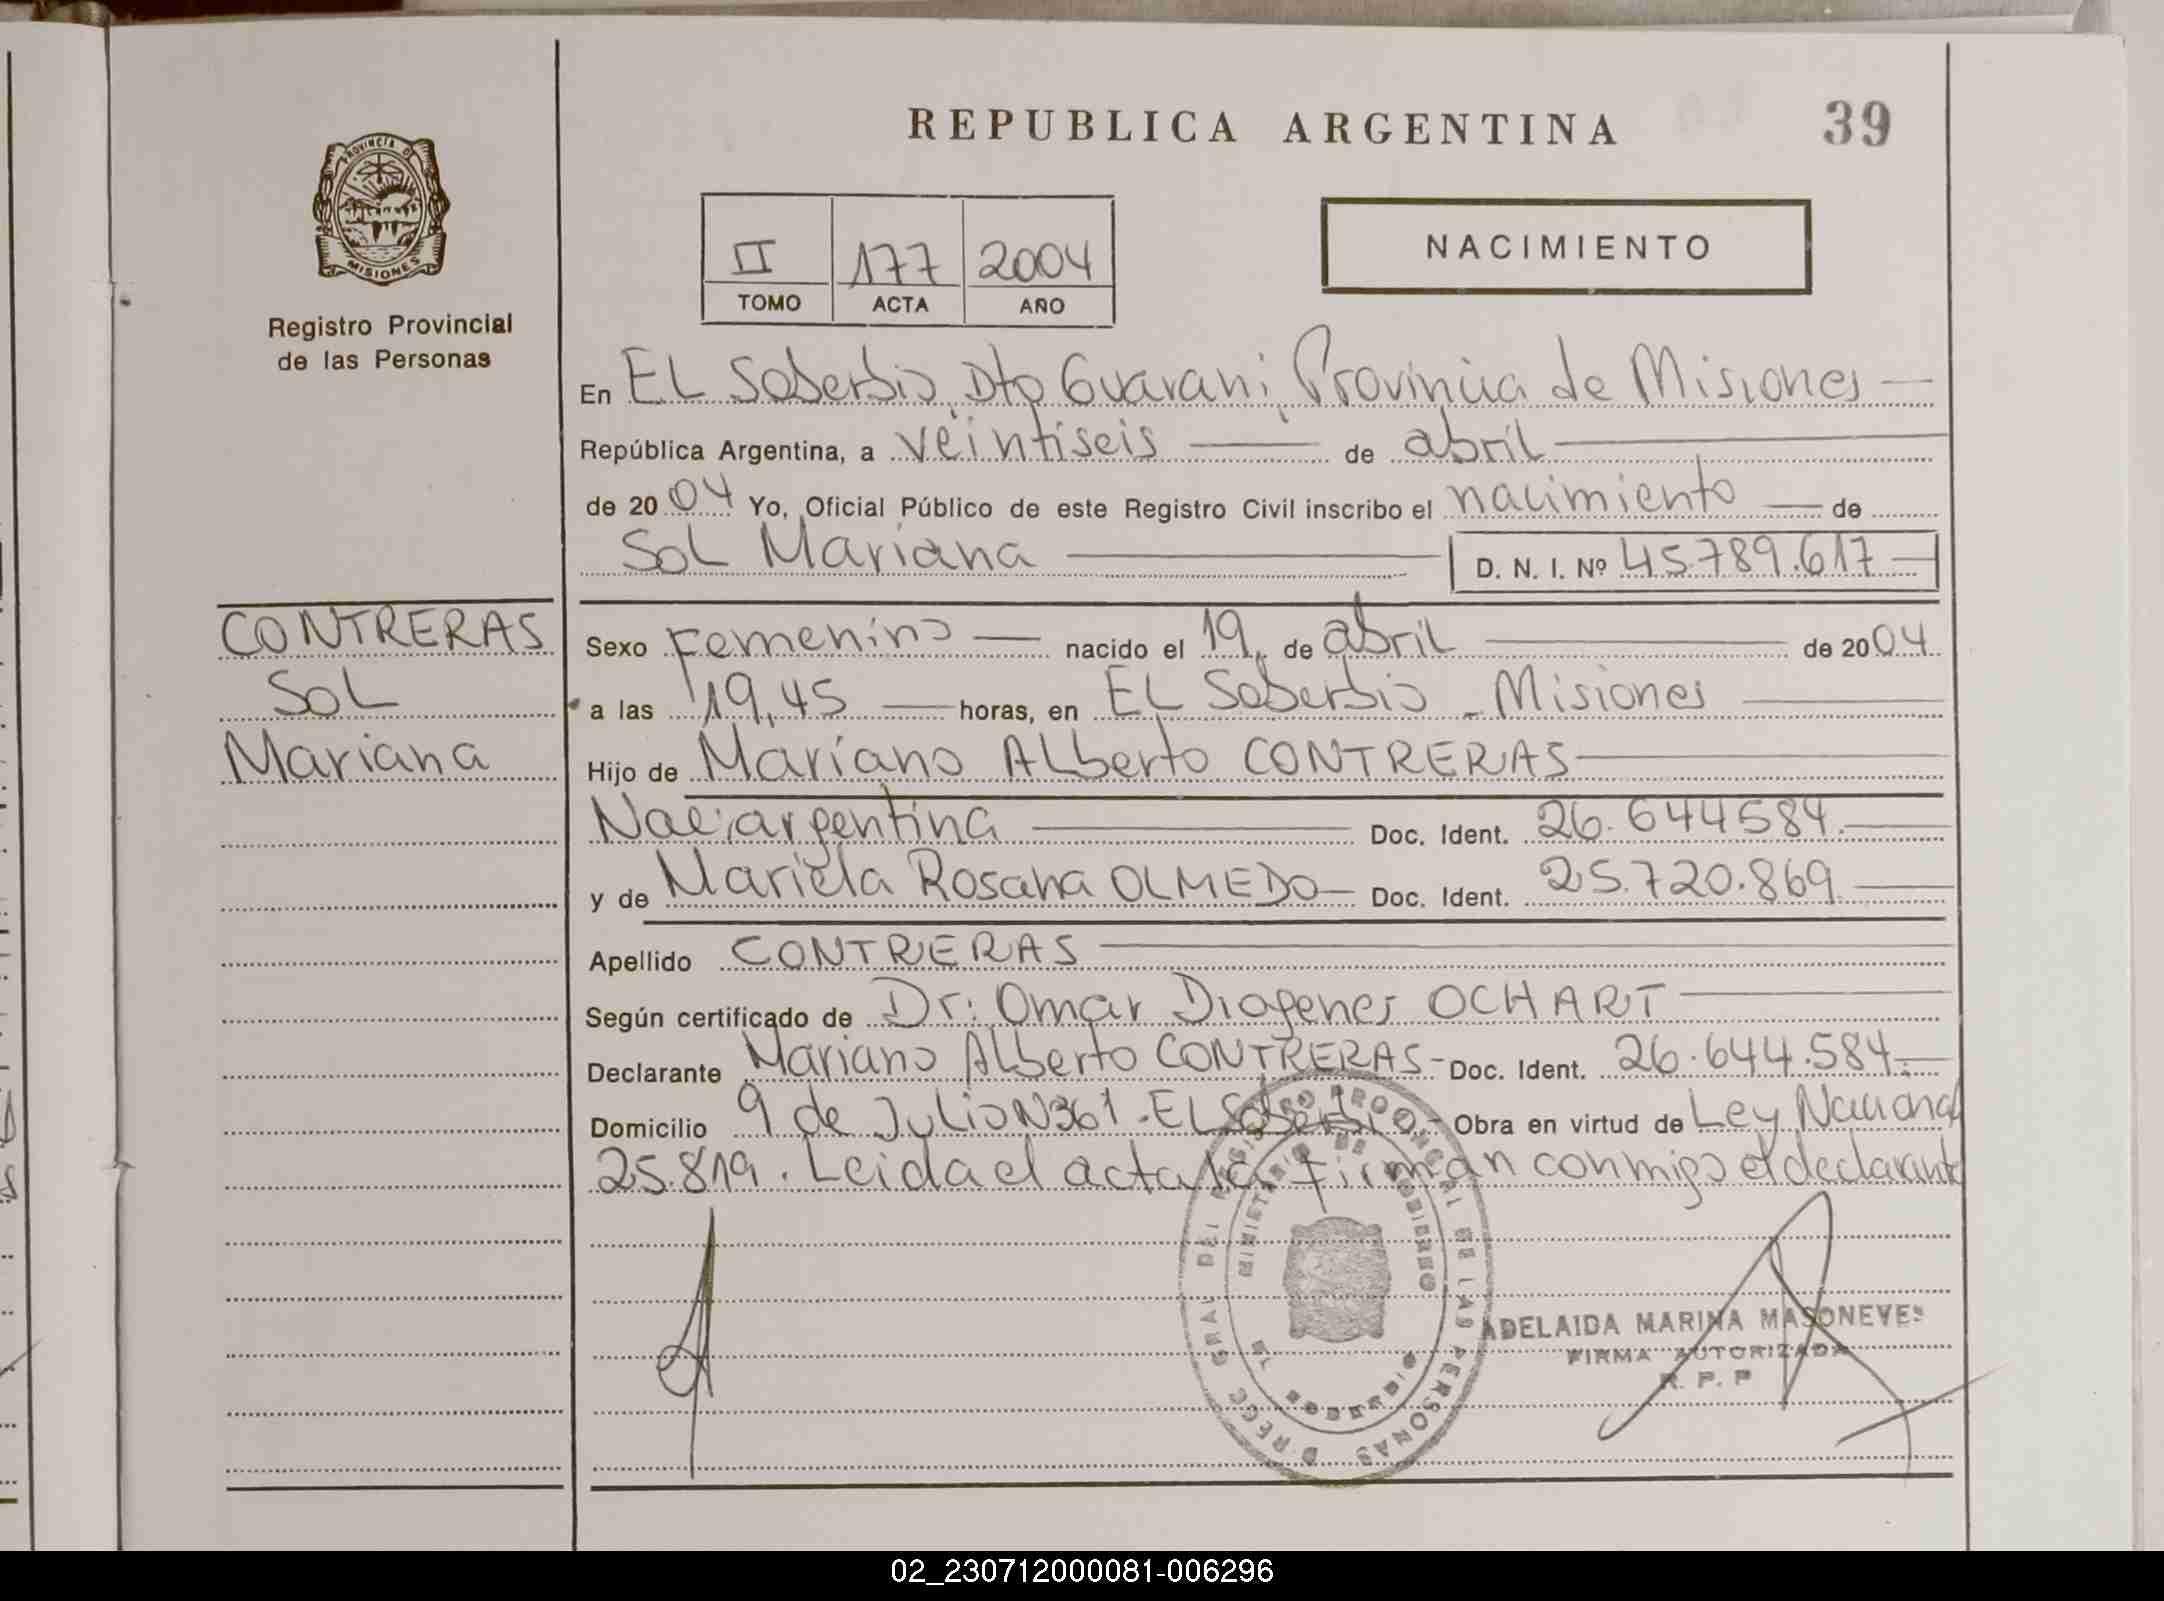 REPUBLICA ARGENTINA
39
PROVINCIA D
MISIONES
Registro Provincial
de las Personas
II 177 2004
TOMO ACTA AÑO
NACIMIENTO
En EL Soberbio, Dto Guarani, Provincia de Misiones
República Argentina, a veintiseis de abril
de 2004 Yo, Oficial Público de este Registro Civil inscribo el nacimiento de
SoL Mariana D. N. I. Nº 45.789.617
CONTRERAS
SoL
Mariana
Sexo Femenino nacido el 19 de abril de 2004
a las 19,45 horas, en EL Soberbio - Misiones
Hijo de Mariano ALberto CONTRERAS
Nac. argentina Doc. Ident. 26.644584
y de Mariela Rosana OLMEDO Doc. Ident. 25.720.869
Apellido CONTRERAS
Según certificado de Dr: Omar Diogenes OCHART
Declarante Mariano ALberto CONTRERAS - Doc. Ident. 26.644.584
Domicilio 9 de JuLio N361. EL Soberbio - Obra en virtud de Ley Nacional
25.819. Leida el acta la firman conmigo el declarante
MINISTERIO DE GOBIERNO
DE LAS PERSONAS
ADELAIDA MARINA MASONEVES
FIRMA AUTORIZADA
R. P. P
02_230712000081-006296